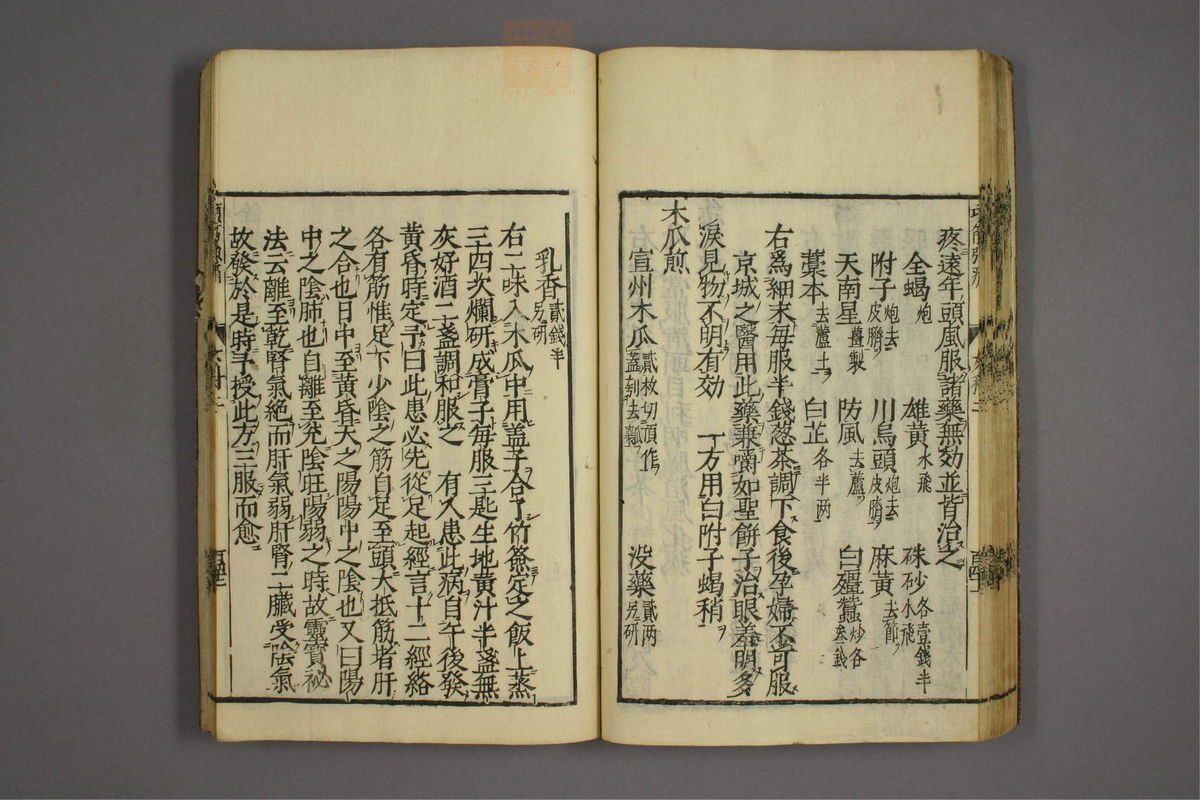 疼遠年頭風服諸藥無効並皆治之
全蝎炮 雄黄水飛 硃砂水飛各壹錢半
附子炮去皮臍 川烏頭炮去皮臍 麻黄去節
天南星薑製 防風去蘆 白殭蠶炒各叁錢
藁本去蘆土 白芷各半两
右爲細末毎服半錢葱茶調下食後孕婦不可服
京城之醫用此藥兼嚼如聖餅子治眼羞明多
淚見物不明有効 一方用白附子蝎稍
木瓜煎
宣州木瓜貳枚切頂作蓋刻去瓤 没藥貳两另研
乳香貳錢半另研
右二味入木瓜中用盖子合了竹簽定之飯上蒸
三四次爛研成膏子毎服三匙生地黄汁半盞無
灰好酒二盞調和服之 有人患此病自午後發
黄昏時定予曰此患必先從足起經言十二經絡
各有筋惟足下少陰之筋自足至頭大抵筋者肝
之合也日中至黄昏天之陽陽中之陰也又曰陽
中之陰肺也自離至兊陰旺陽弱之時故靈寳祕
法云離至乾腎氣絶而肝氣弱肝腎二臟受陰氣
故發於是時予授此方三服而愈